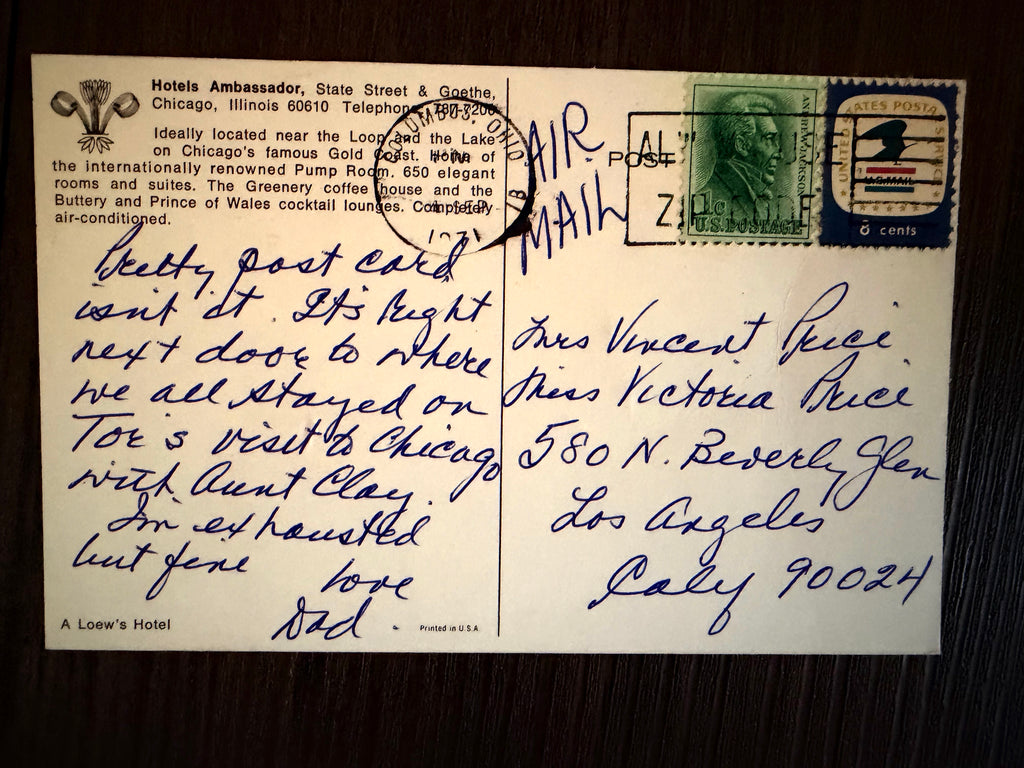 Hotels Ambassador, State Street & Goethe,
Chicago, Illinois 60610 Telephone 787-7200
Ideally located near the Loop and the Lake
on Chicago's famous Gold Coast. Home of
the internationally renowned Pump Room. 650 elegant
rooms and suites. The Greenery coffee house and the
Buttery and Prince of Wales cocktail lounges. Completely
air-conditioned.
Pretty post card
isn't it. It's Right
next door to where
we all stayed on
Tor's visit to Chicago
with Aunt Clay.
I'm exhausted
but fine
love
Dad.
A Loew's Hotel
Printed in U.S.A.
COLUMBUS, OHIO
SEP
1971
AIR
MAIL
POST
ANDREW JACKSON
1c
U.S. POSTAGE
UNITED STATES POSTAL SERVICE
U.S. MAIL
8 cents
Mrs Vincent Price
Miss Victoria Price
580 N. Beverly Glen
Los Angeles
Calif 90024